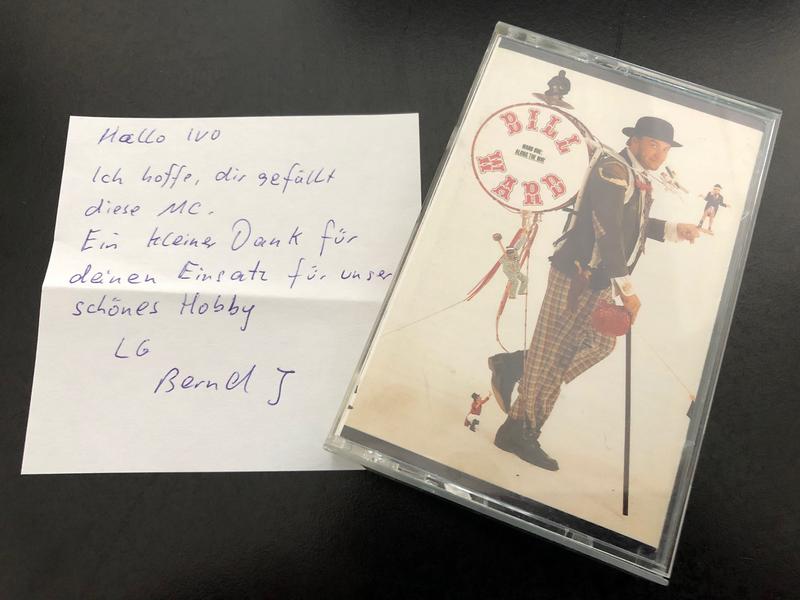 Hallo Ivo
Ich hoffe, dir gefällt
diese MC.
Ein kleiner Dank für
deinen Einsatz für unser
schönes Hobby
LG
Bernd J
BILL
WARD ONE:
ALONG THE WAY
WARD